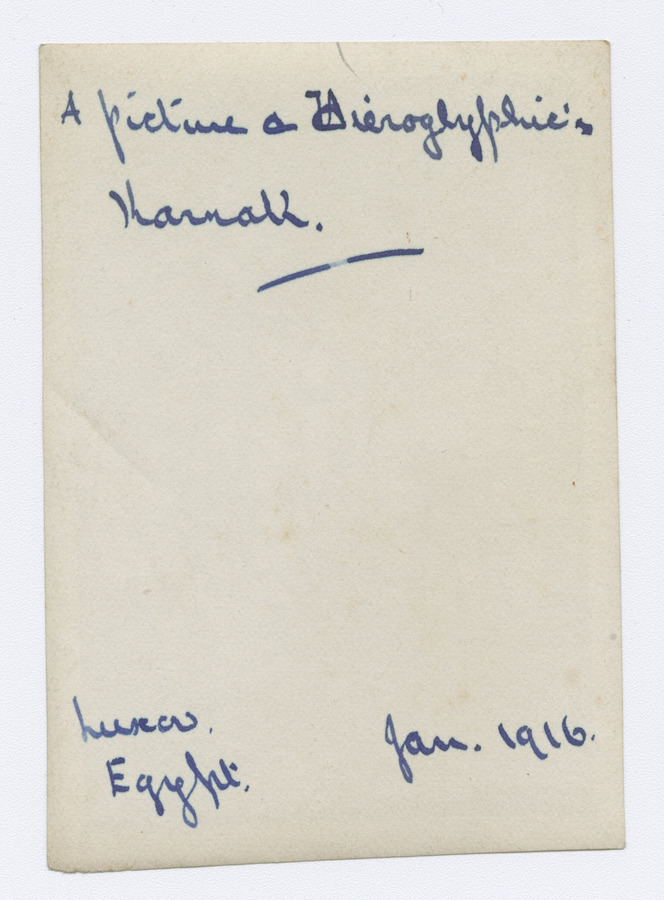 A picture a Hieroglyphic's
Karnak.
Luxor.
Egypt.
Jan. 1916.